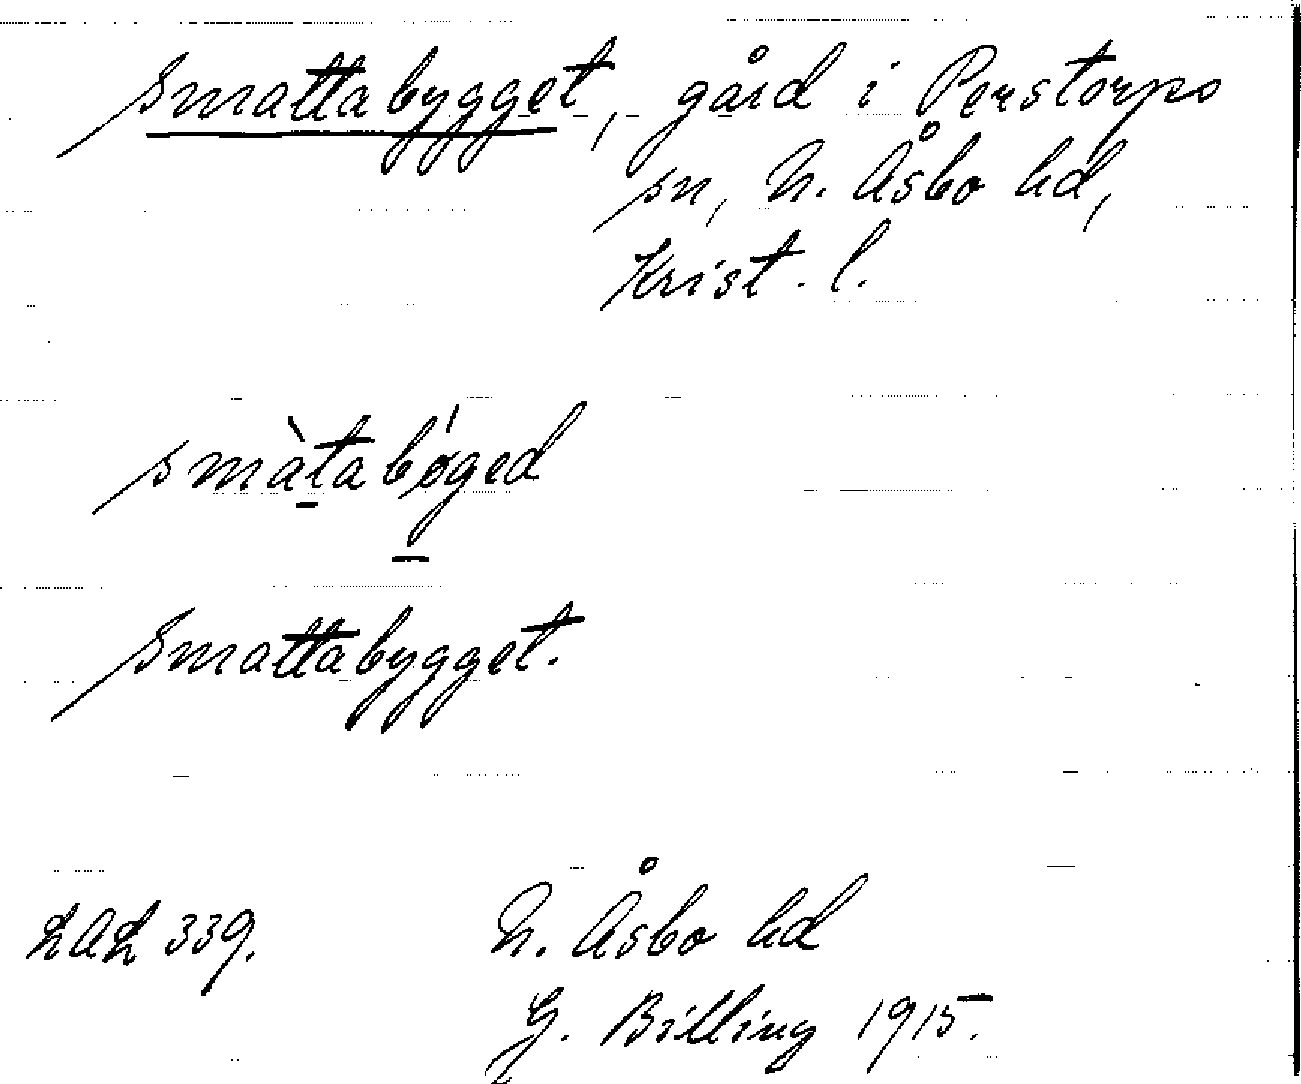 Smattabygget, gård i Perstorps
sn, N. Åsbo hd,
Krist. l.
smàtabǿged
Smattabygget.
LAL 339.
N. Åsbo hd
G. Billing 1915.